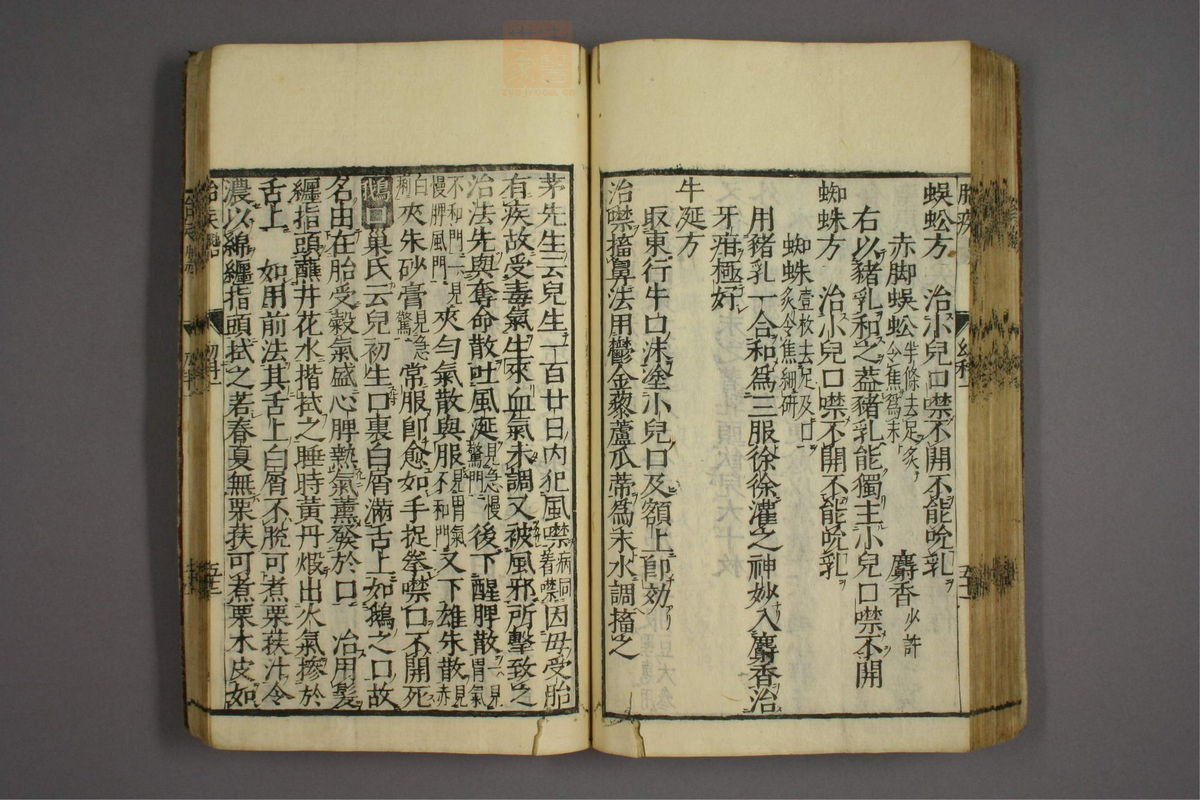 蜈蚣方　治小兒口噤不開不能吮乳
赤脚蜈蚣半條去足炙令焦爲末　麝香少許
右以豬乳和之蓋豬乳能獨主小兒口噤不開
蜘蛛方　治小兒口噤不開不能吮乳
蜘蛛壹枚去足及口炙令焦細研
用豬乳一合和爲三服徐徐灌之神妙入麝香治
牙疳極好
牛涎方
取東行牛口沫塗小兒口及額上卽効
治噤搐鼻法用鬱金藜蘆瓜蒂爲末水調搐之
茅先生云兒生一百廿日內犯風噤病同着噤因母受胎
有疾故受毒氣生來血氣未調又被風邪所擊致之
治法先與奪命散吐風涎見急慢驚門後下醒脾散一見胃氣
不和門二見慢脾風門夾勻氣散與服見胃氣不和門又下雄朱散見赤
白痢夾朱砂膏見急驚常服卽愈如手捉拳噤口不開死
鵝口　巢氏云兒初生口裏白屑滿舌上如鵝之口故
名由在胎受穀氣盛心脾熱氣薰發於口　治用髪
纏指頭蘸井花水揩拭之睡時黃丹煅出火氣摻於
舌上　如用前法其舌上白屑不脫可煮栗莢汁令
濃以綿纏指頭拭之若春夏無栗莢可煮栗木皮如